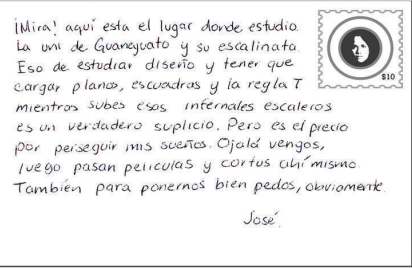 ¡Mira! aquí esta el lugar donde estudio.
La uni de Guaneyuato y su escalinata.
Eso de estudiar diseño y tener que
cargar planos, escuadras y la regla T
mientras subes esas infernales escaleras
es un verdadero suplicio. Pero es el precio
por perseguir mis sueños. Ojalá vengas,
luego pasan películas y cortos ahí mismo.
También para ponernos bien pedos, obviamente.
José.
$10